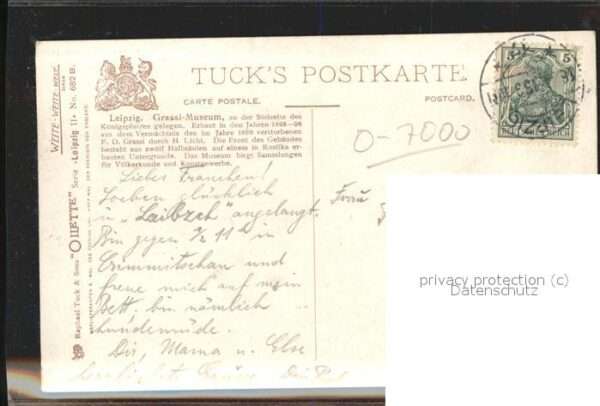 TUCK'S POSTKARTE
CARTE POSTALE. POSTCARD.
Leipzig. Grassi-Museum, an der Südseite des
Königsplatzes gelegen. Erbaut in den Jahren
aus dem Vermächtnis des im Jahre verstorbenen
F. D. Grassi durch H. Licht. Die Front des Gebäudes
besteht aus zwölf Halbsäulen auf einem in Rustika er-
bauten Untergrunde. Das Museum birgt Sammlungen
für Völkerkunde und Kunstgewerbe.
5 5
DEUTSCHES REICH
LEIPZIG
O-7000
Liebes Franchen!
Soeben glücklich
in „Laibzch" angelangt.
Bin gegen ½ 11h in
Crimmitschau und
freue mich auf mein
Bett, bin nämlich
hundemüde.
Dir, Mama u. Else
herzliche Grüsse
Frau
Raphael Tuck & Sons' "OILETTE" Serie »Leipzig II« No. 682 B.
privacy protection (c)
Datenschutz